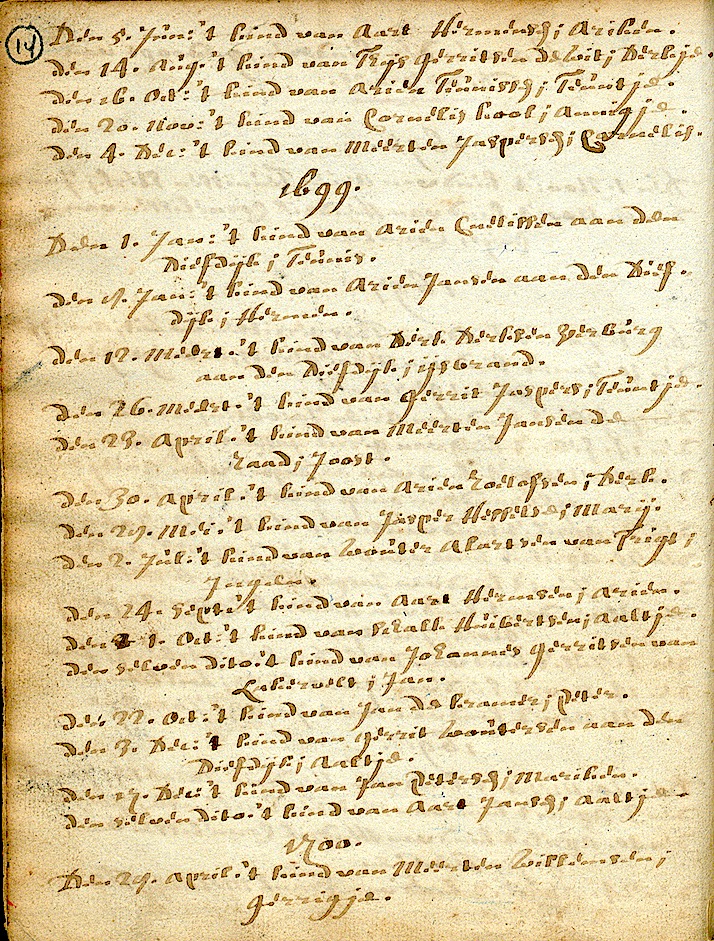 14
Den 5. Jun: 't kind van Aart Hermensz; Ariken.
den 14. Aug: 't kind van Thijs Gerritsen de wit; Derkje.
den 16. Oct: 't kind van Arien Teunissz; Teuntje.
den 20. Nov: 't kind van Cornelis kool; Annigje.
den 4. Dec: 't kind van Meerten Jaspersz; Cornelis.
1699.
Den 1. Jan: 't kind van Arien Cnelissen aan den
Diefdijk; Teunis.
den Jan: 't kind van Arien Jansen aan den Dief-
dijk; Hermen.
den 12. Meert: 't kind van Derk Derksen Verburg
aan den Diefdijk; ijsbrand.
den 26. Meert: 't kind van Gerrit Jaspers; Teuntje.
den 23. April: 't kind van Meerten Jansen de
raad; Joost.
den 30. April: 't kind van Arien Roelofsen; Derk.
den 29. Mei: 't kind van Jasper Hessels; Marij.
den 2. Jul: 't kind van Wouter Alartsen van Trigt;
Jngeln.
den 24. Sept: 't kind van Aart Hermsen; Arien.
den 1. Oct: 't kind van Schalk Huibertsen; Aaltje.
den selven dito: 't kind van Johannes Gerritsen van
Lakervelt; Jan.
den 22. Oct: 't kind van Jan de kramer; Peter.
den 3. Dec: 't kind van Gerrit Woutersen aan den
Diefdijk; Aaltje.
den 17. Dec: 't kind van Jan Petersz; Mariken.
den selven dito: 't kind van Aart Jansz; Aaltje.
1700.
Den 29. April: 't kind van Meerten Willemsen;
Gerrigje.